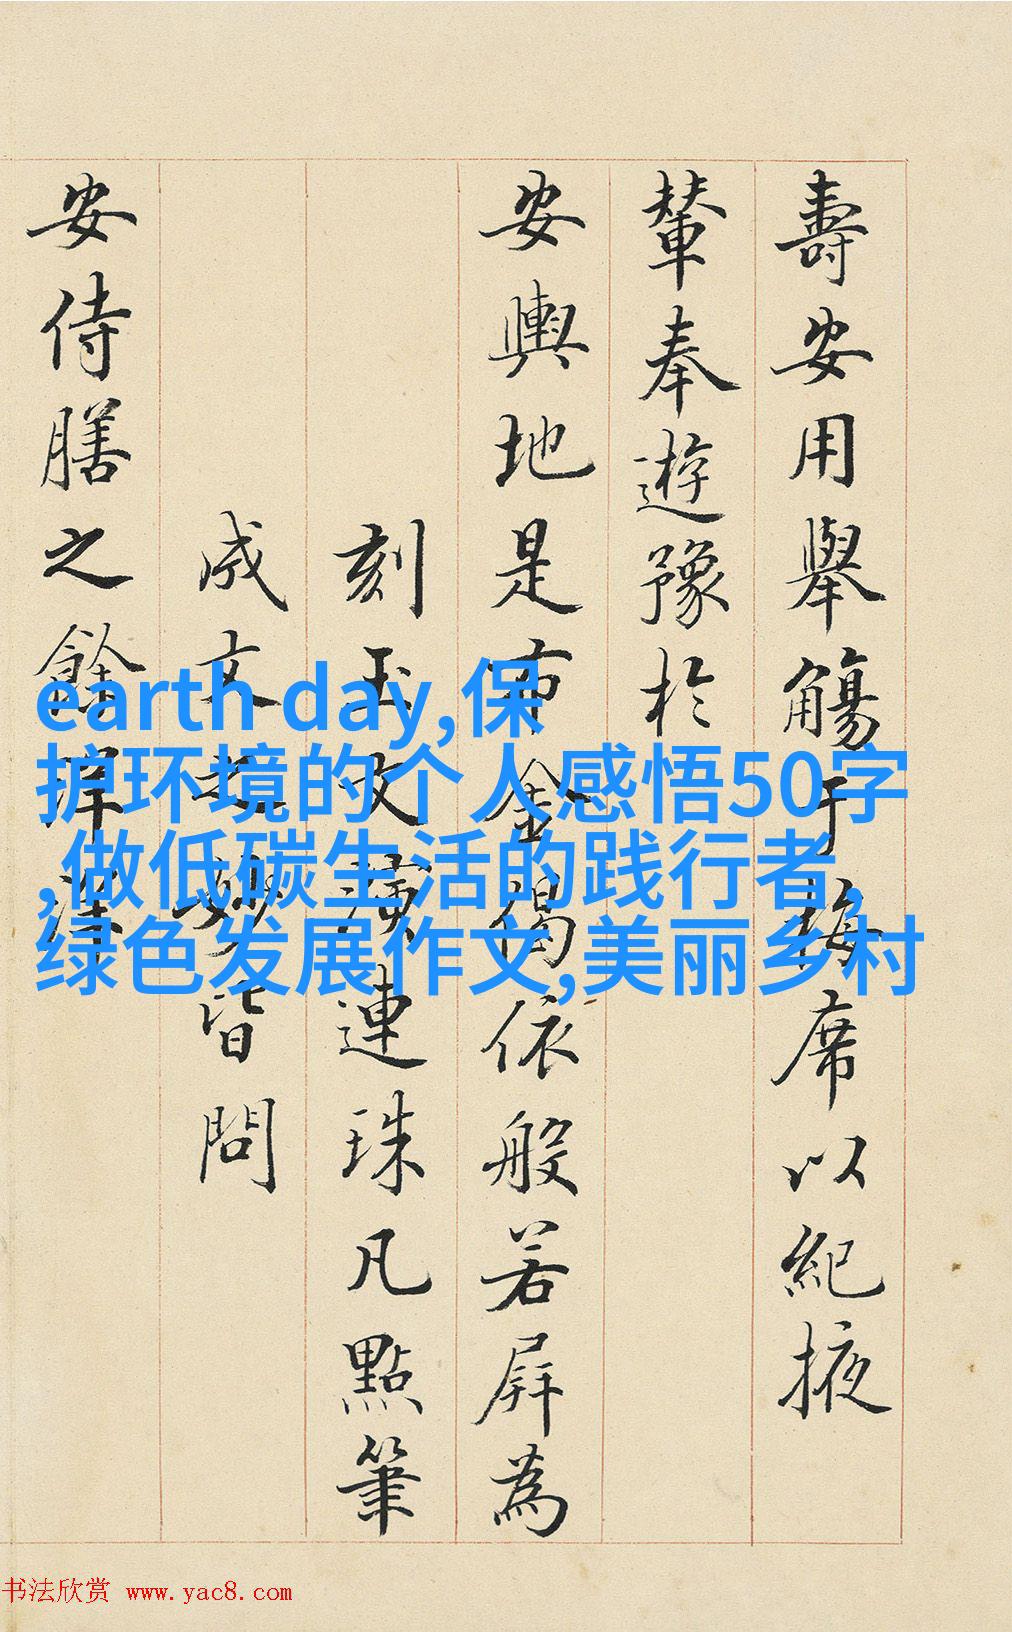 壽安用舉觴于席以紀掖
輦奉遊豫於
安輿地是布金偈依般若屏為
刻玉文連珠凡點筆
成文妙皆問
安侍膳之餘
earth day,保
护环境的个人感悟50字
,做低碳生活的践行者,
绿色发展作文,美丽乡村
书法欣赏 www.yac8.com